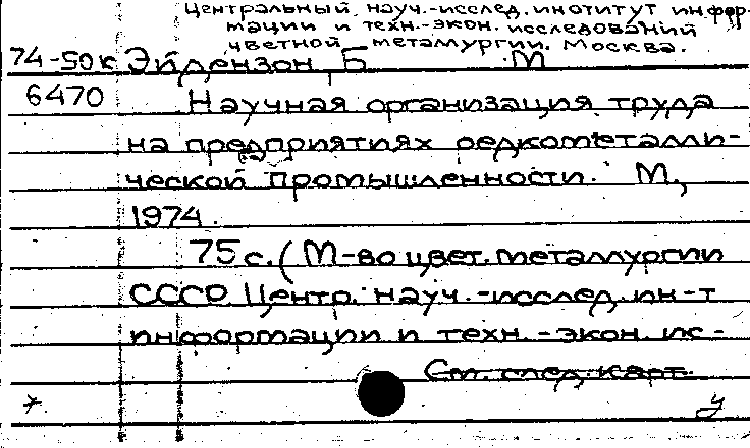 Центральный науч.-исслед. институт инфор-
мации и техн.-экон. исследований
цветной металлургии. Москва.
74-50к Эйдензон Б М
6470 Научная организация труда
на предприятиях редкометалли-
ческой промышленности. М.,
1974.
75 с. (М-во цвет. металлургии
СССР Центр. науч.-исслед. ин-т
информации и техн.-экон. ис-
См. след. карт.